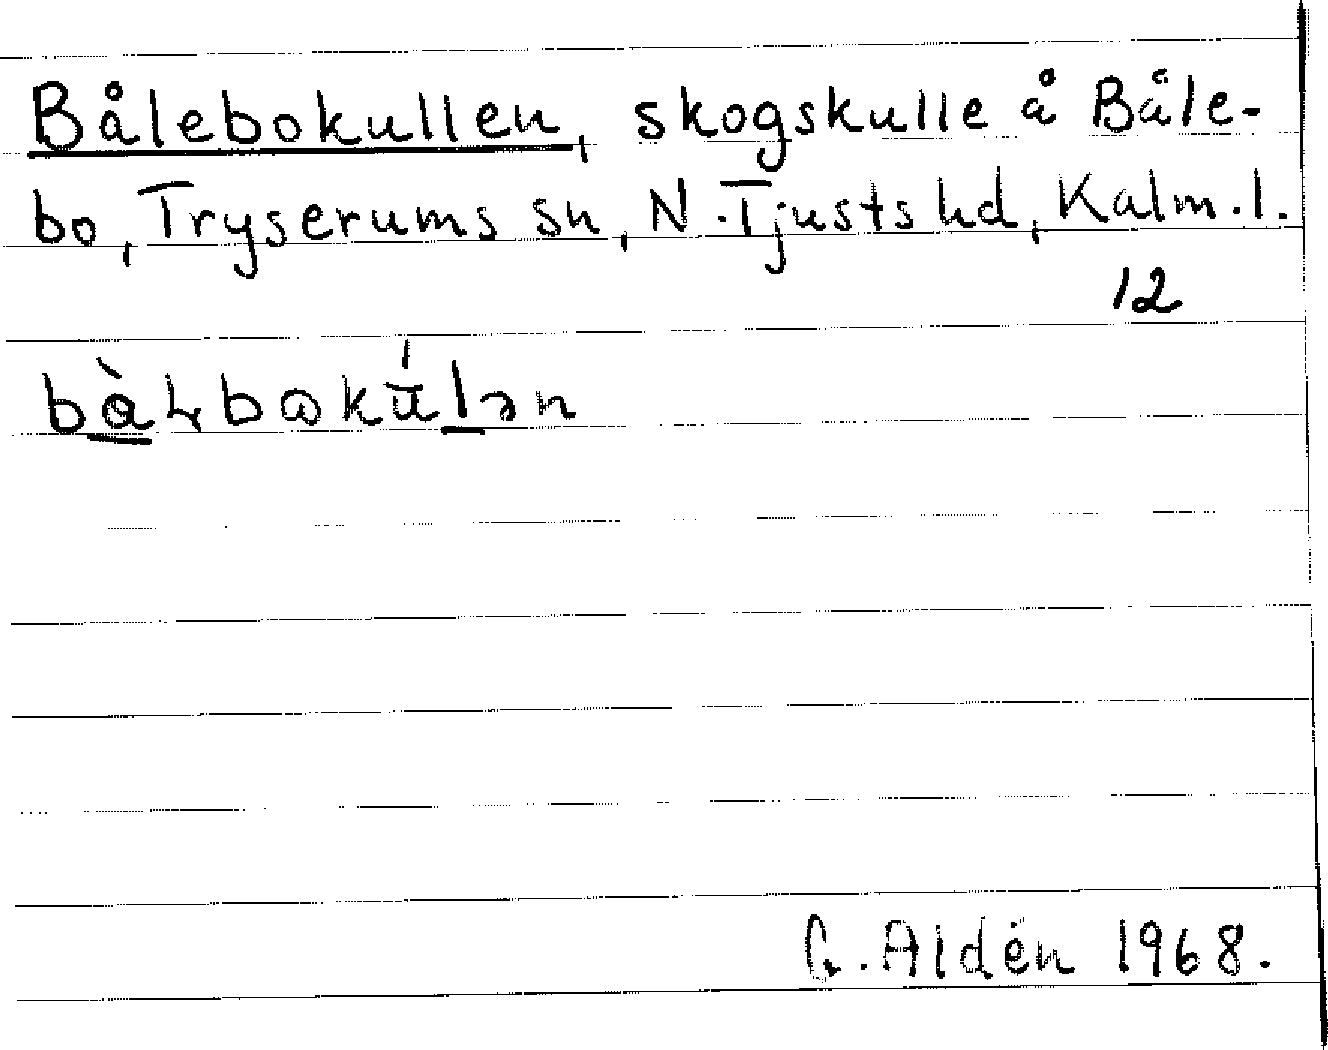 Bålebokullen, skogskulle å Båle-
bo, Tryserums sn, N. Tjusts hd, Kalm. l.
12
G. Aldén 1968.